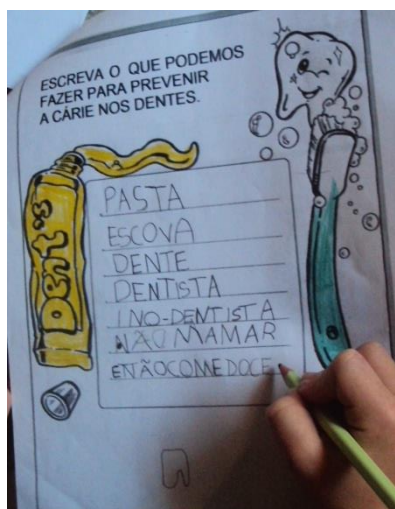 ESCREVA O QUE PODEMOS
FAZER PARA PREVENIR
A CÁRIE NOS DENTES.
Dent's
PASTA
ESCOVA
DENTE
DENTISTA
INO-DENTISTA
NÃO MAMAR
ENÃOCOMEDOCE